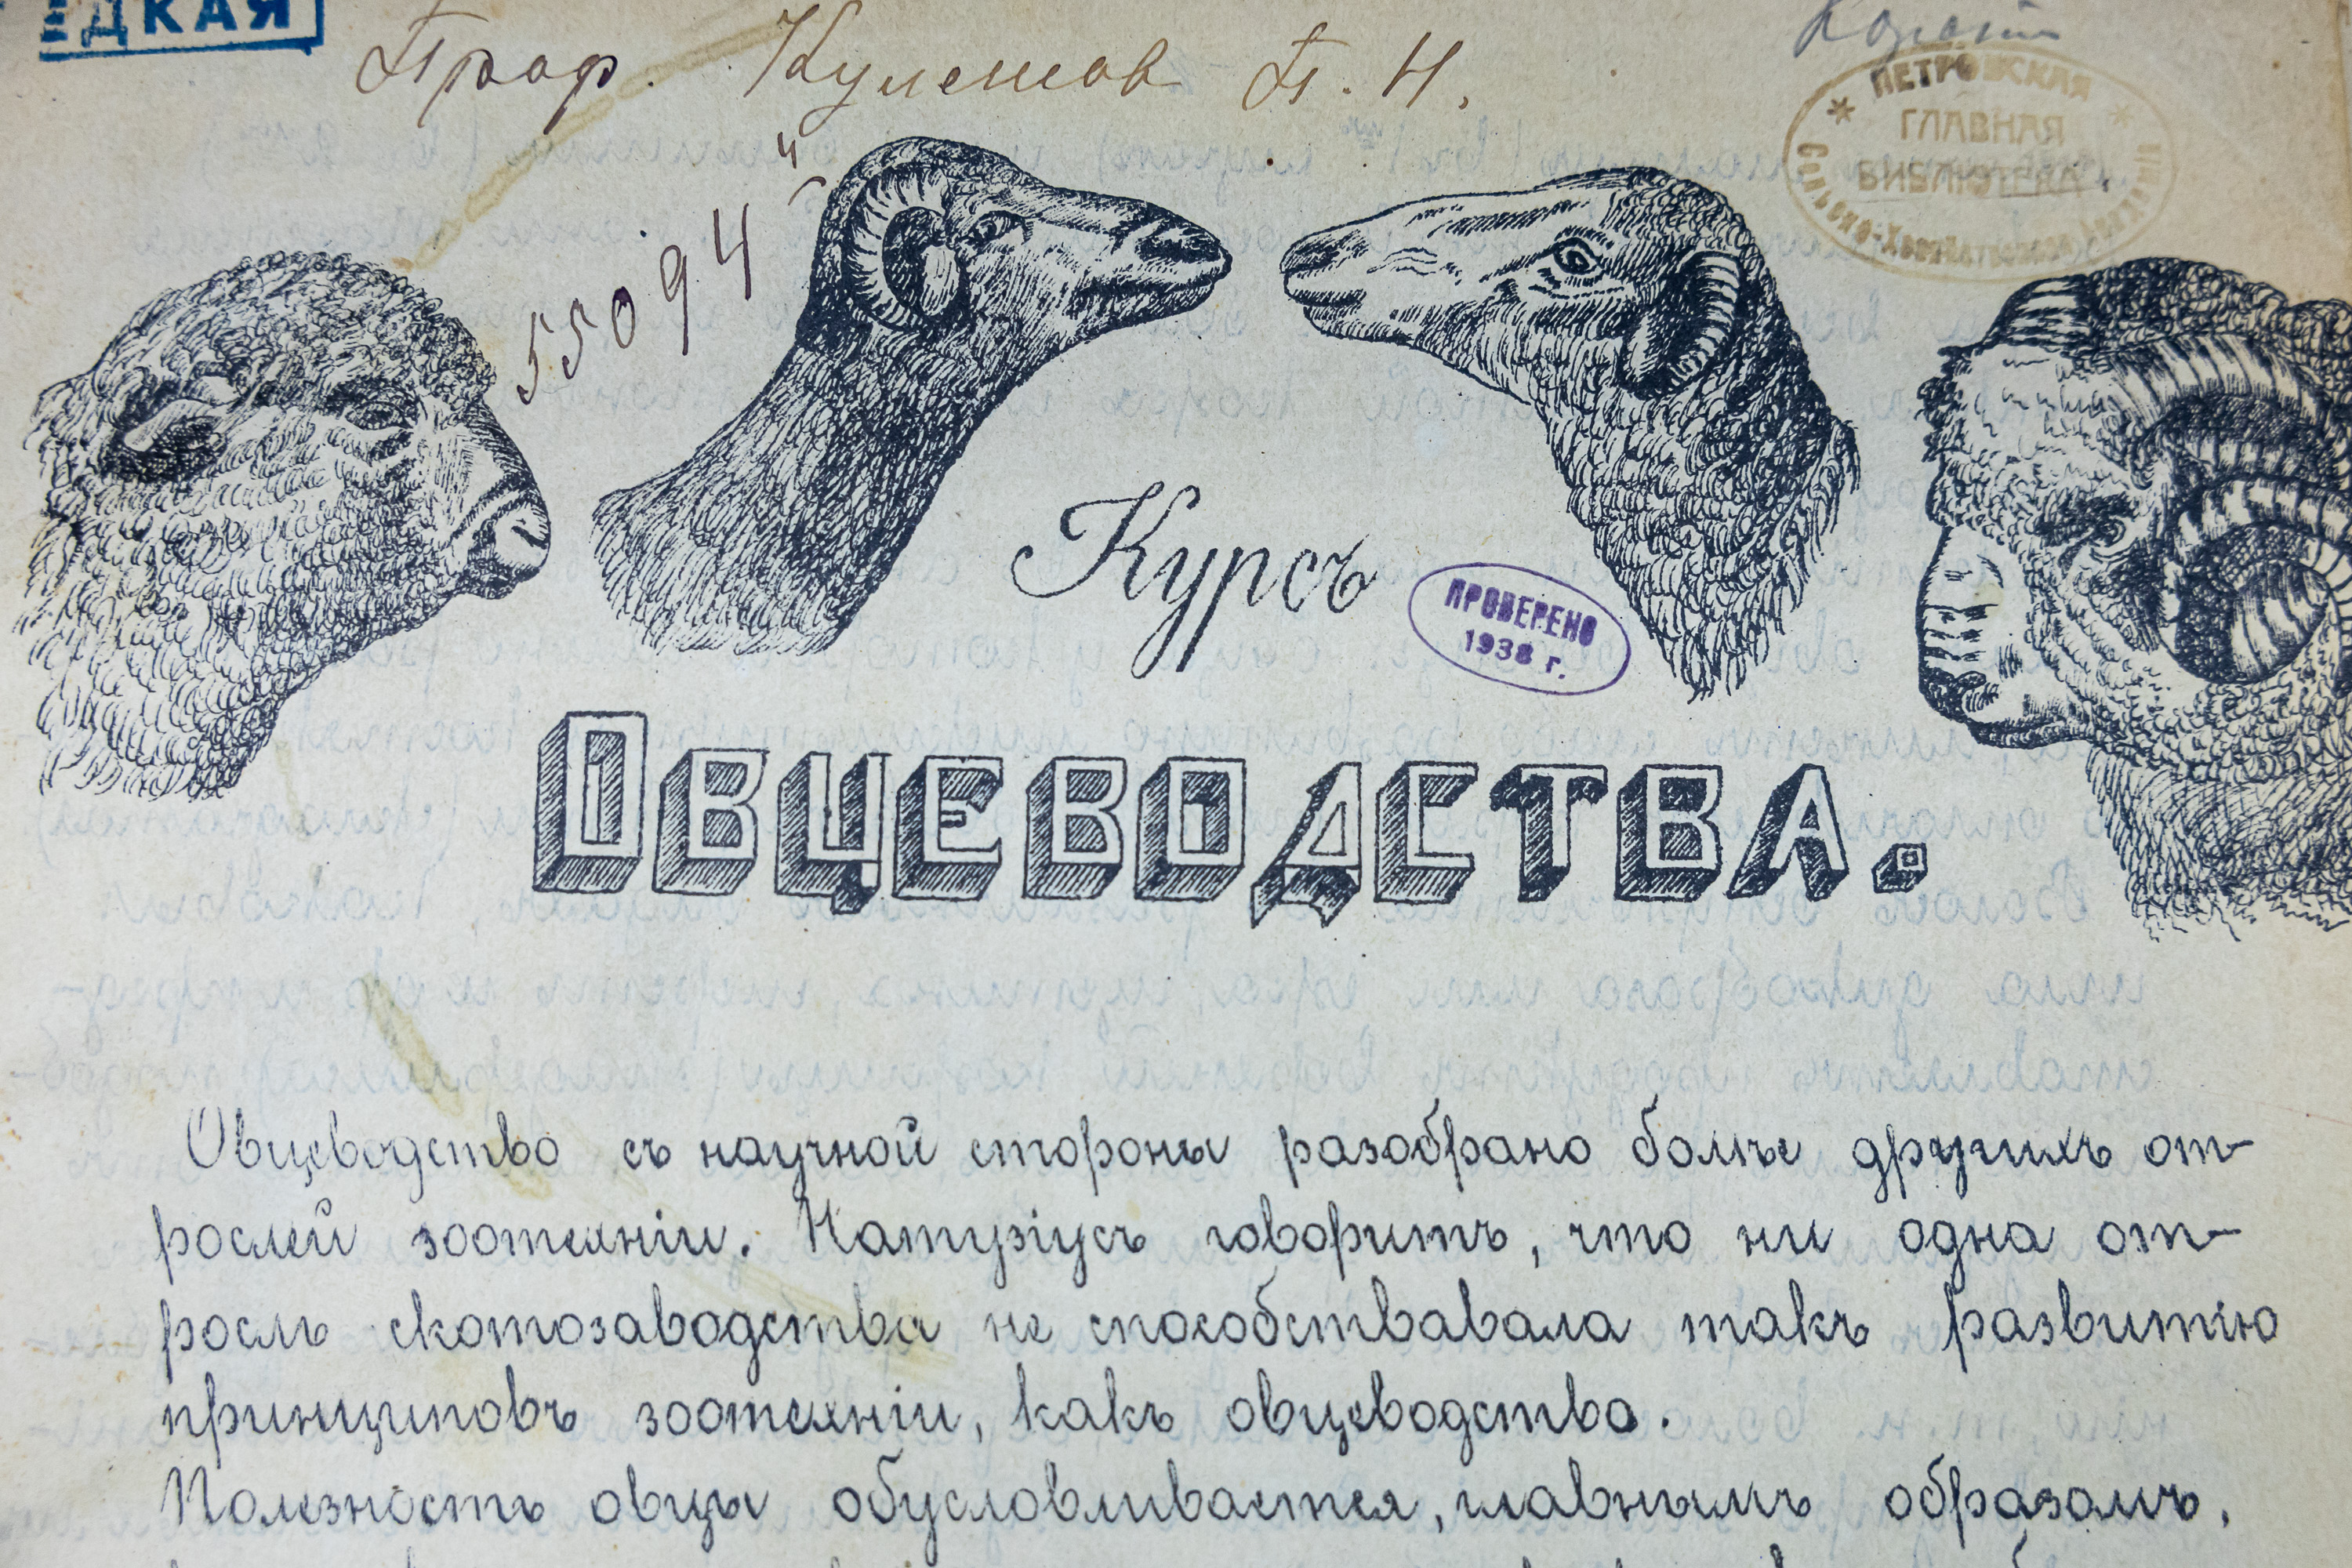 ЕДКАЯ
Проф. Кулешов П. Н.
ПЕТРОВСКАЯ
ГЛАВНАЯ
БИБЛІОТЕКА
55094
Курсъ
ПРОВЕРЕНО
1938 г.
ОВЦЕВОДСТВА.
Овцеводство съ научной стороны разобрано болѣе другихъ от-
рослей зоотехніи. Натузіусъ говоритъ, что ни одна от-
росль скотозаводства не способствавала такъ развитію
принциповъ зоотехніи, какъ овцеводство.
Полезность овцы обусловливается, главнымъ образомъ,